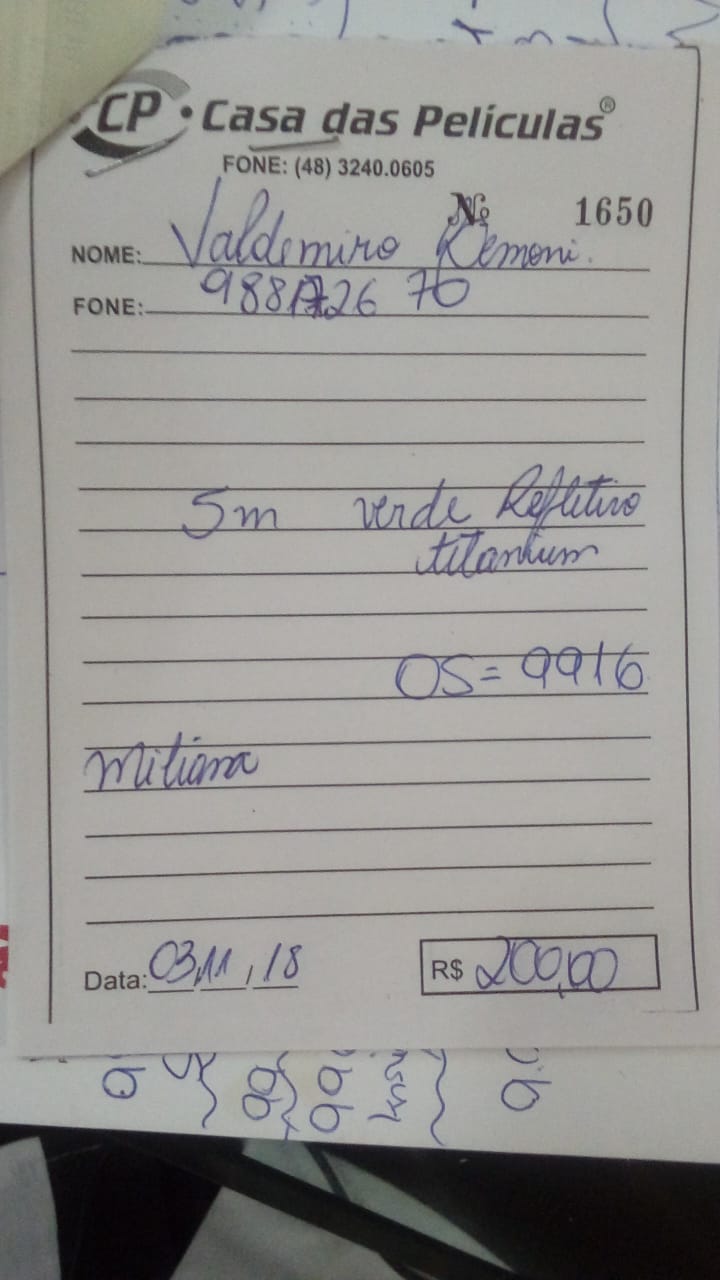 CP • Casa das Películas®
FONE: (48) 3240.0605
Nº 1650
NOME: Valdemiro
FONE: 26 70
5m verde Refletivo
titanium
OS = 9916
Miliana
Data: 03,11,18 R$ 200,00